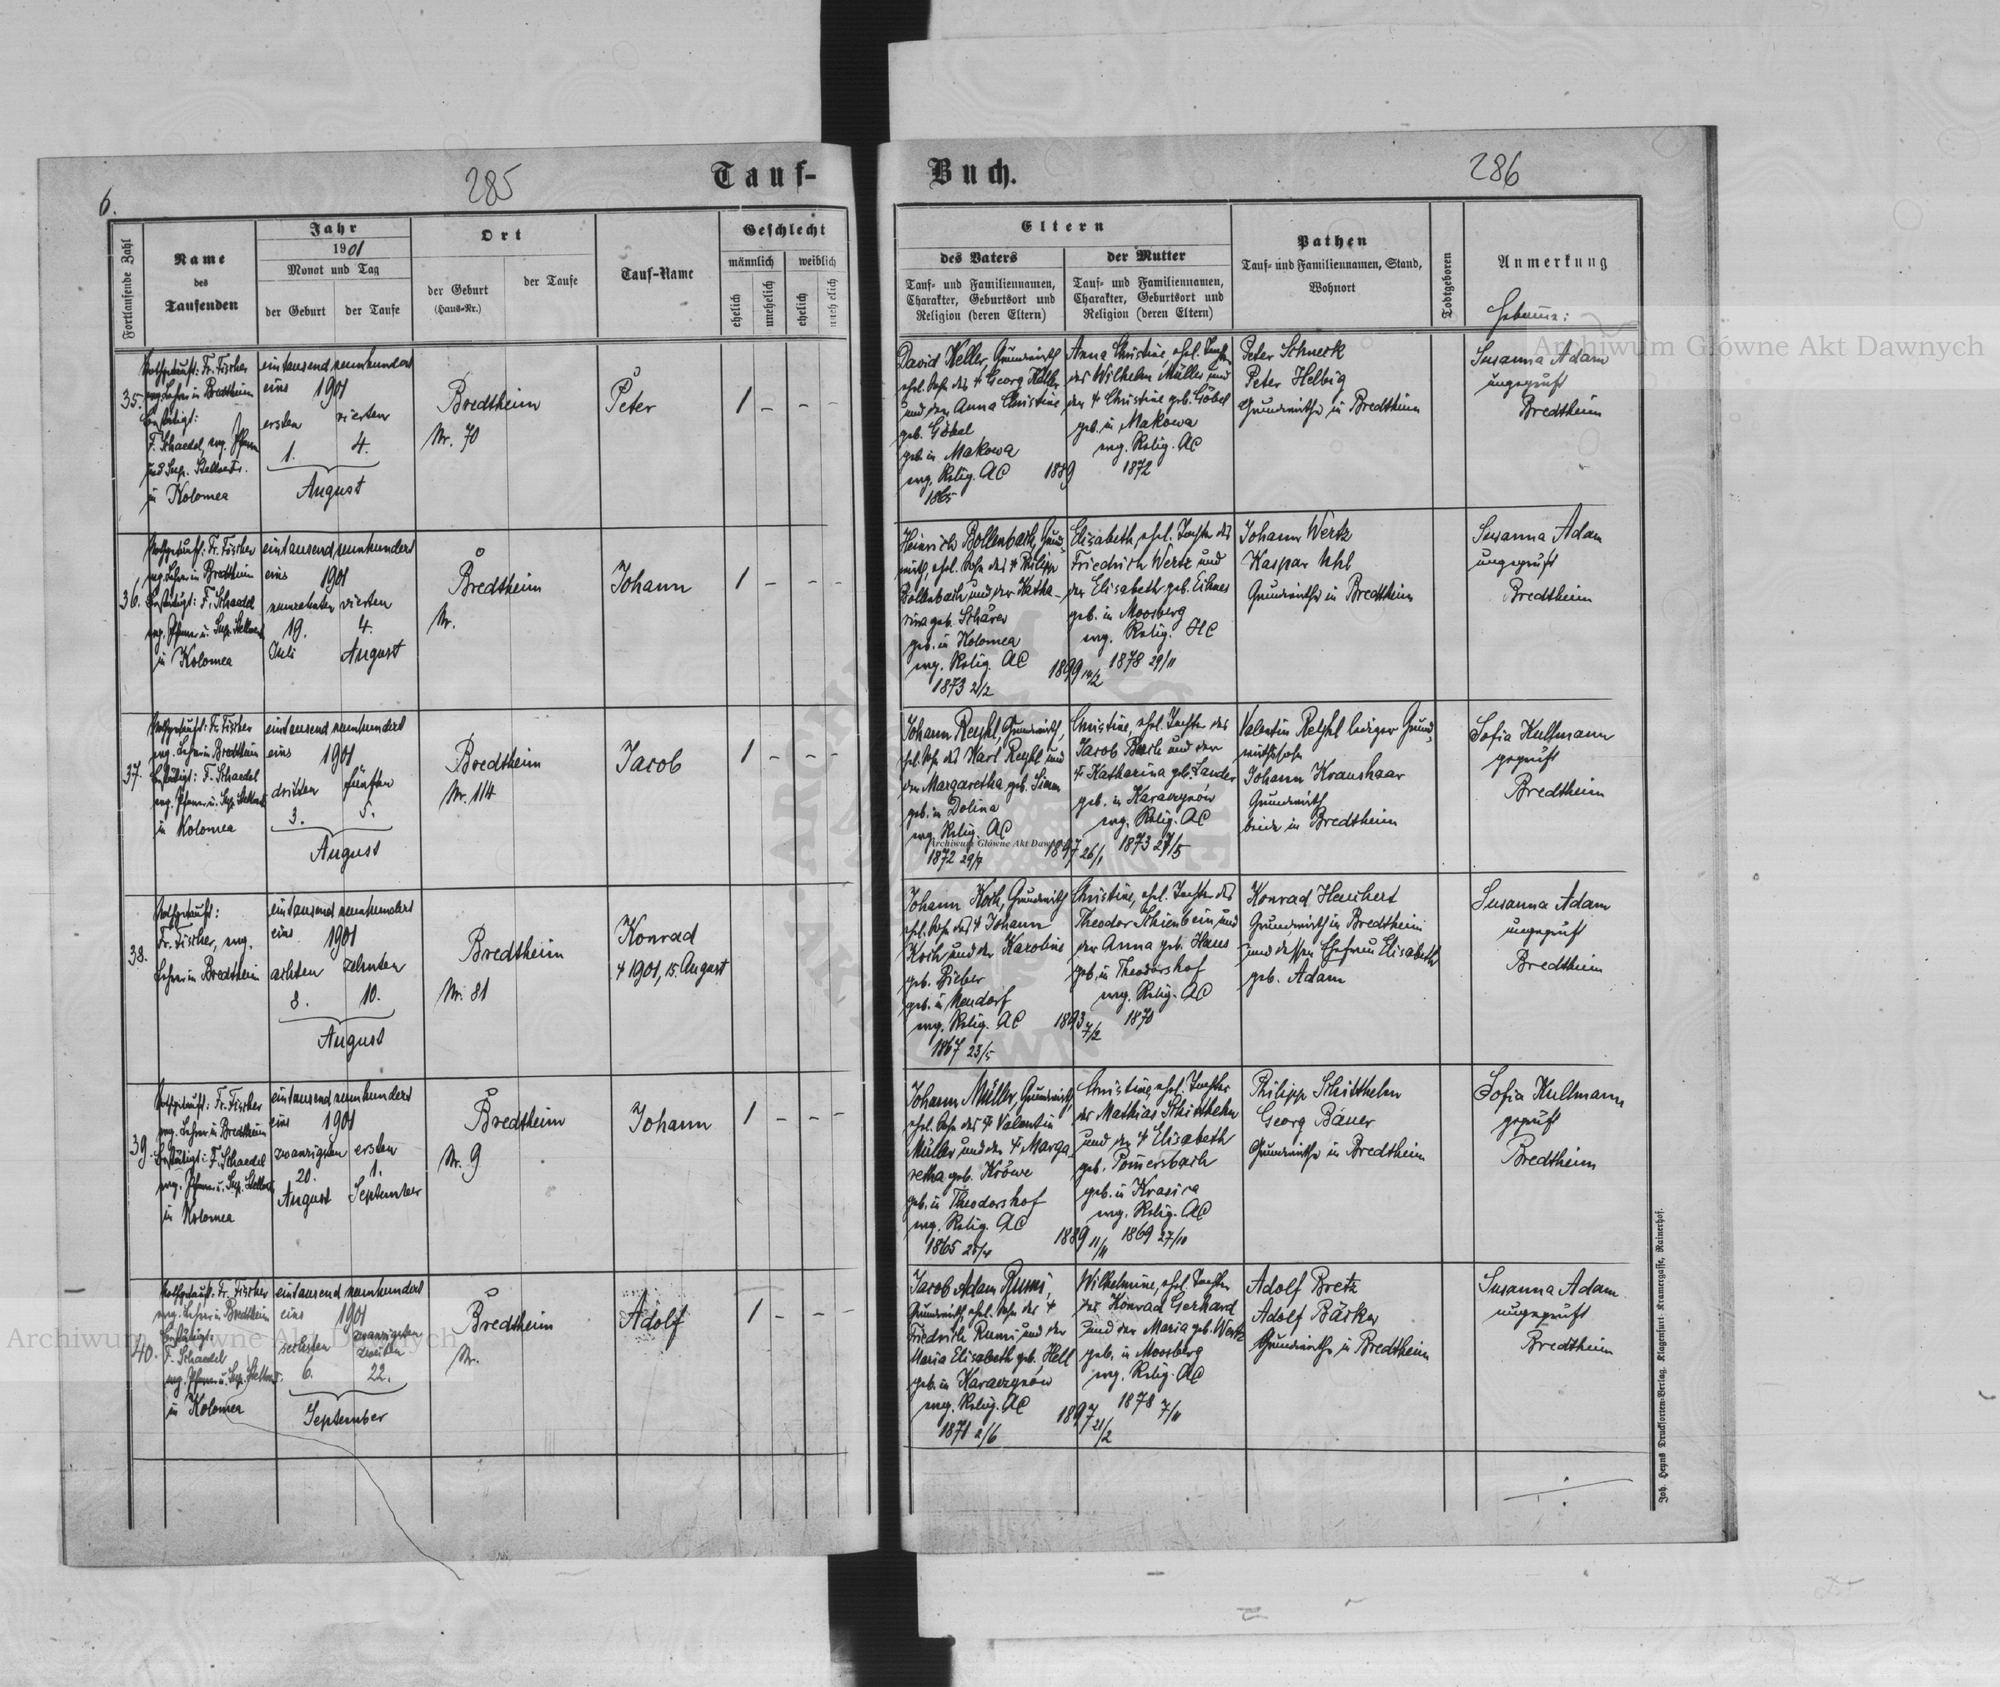 6.
285
Tauf-
Buch.
286
Fortlaufende Zahl
Name
des
Taufenden
Jahr
1901
Monat und Tag
der Geburt
der Taufe
Ort
der Geburt
(Haus-Nr.)
der Taufe
Tauf-Name
Geschlecht
männlich
weiblich
ehelich
unehelich
ehelich
unehelich
Eltern
des Vaters
Tauf- und Familiennamen,
Charakter, Geburtsort und
Religion (deren Eltern)
der Mutter
Tauf- und Familiennamen,
Charakter, Geburtsort und
Religion (deren Eltern)
Pathen
Tauf- und Familiennamen, Stand,
Wohnort
Todtgeboren
Anmerkung
Hebamme:
35.
Nothgetauft: Fr. Fischer
evg. Lehrer in Bredtheim
Bestätigt:
F. Schaedel, evg. Pfarrer
und Sup. Stellvertr.
in Kolomea
eintausend neunhundert
eins 1901
ersten vierten
1. 4.
August
Bredtheim
Nr. 70
Peter
1 – – –
David Keller, Grundwirth,
ehel. Sohn des † Georg Keller
und der Anna Christine
geb. Göbel
geb. in Makowa
evg. Relig. AC
1865
1889
Anna Christine, ehel. Tochter
des Wilhelm Müller und
der † Christine geb. Göbel
geb. in Makowa
evg. Relig. AC
1872
Peter Schneck
Peter Helbig
Grundwirthe in Bredtheim
Susanna Adam
ungeprüft
Bredtheim
36.
Nothgetauft: Fr. Fischer
evg. Lehrer in Bredtheim
Bestätigt: F. Schaedel
evg. Pfarrer u. Sup. Stellvert.
in Kolomea
eintausend neunhundert
eins 1901
neunzehnten vierten
19. 4.
Juli August
Bredtheim
Nr.
Johann
1 – – –
Heinrich Bollenbach, Grund-
wirth, ehel. Sohn des † Philipp
Bollenbach und der Katha-
rina geb. Schärer
geb. in Kolomea
evg. Relig. AC
1873 2/2
1899 14/2
Elisabeth, ehel. Tochter des
Friedrich Wertz und
der Elisabeth geb.
geb. in Moosberg
evg. Relig. HC
1878 29/11
Johann Wertz
Kaspar Uhl
Grundwirthe in Bredtheim
Susanna Adam
ungeprüft
Bredtheim
37.
Nothgetauft: Fr. Fischer
evg. Lehrer in Bredtheim
Bestätigt: F. Schaedel
evg. Pfarrer u. Sup. Stellvert.
in Kolomea
eintausend neunhundert
eins 1901
dritten fünften
3. 5.
August
Bredtheim
Nr. 114
Jacob
1 – – –
Johann Reykl, Grundwirth,
ehel. Sohn des Karl Reykl und
der Margaretha geb. Simon
geb. in Dolina
evg. Relig. AC
1872 29/7
1897 26/1
Christine, ehel. Tochter des
Jacob und der
† Katharina geb. Sander
geb. in Karaczynów
evg. Relig. AC
1873 27/5
Valentin Reykl lediger Grund-
wirthssohn
Johann Kraushaar
Grundwirth
beide in Bredtheim
Sofia Kullmann
geprüft
Bredtheim
38.
Nothgetauft:
Fr. Fischer, evg.
Lehrer in Bredtheim
eintausend neunhundert
eins 1901
achten zehnten
8. 10.
August
Bredtheim
Nr. 81
Konrad
† 1901, 15. August
Johann Koch, Grundwirth
ehel. Sohn des † Johann
Koch und der Karoline
geb. Bieber
geb. in Neudorf
evg. Relig. AC
1867 23/5
1893 7/2
Christine, ehel. Tochter des
Theodor Schienbein und
der Anna geb. Haus
geb. in Theodorshof
evg. Relig. AC
1870
Konrad Haubert
Grundwirth in Bredtheim
und dessen Ehefrau Elisabeth
geb. Adam
Susanna Adam
ungeprüft
Bredtheim
39.
Nothgetauft: Fr. Fischer
evg. Lehrer in Bredtheim
Bestätigt: F. Schaedel
evg. Pfarrer u. Sup. Stellvert.
in Kolomea
eintausend neunhundert
eins 1901
zwanzigsten ersten
20. 1.
August September
Bredtheim
Nr. 9
Johann
1 – – –
Johann Müller, Grundwirth,
ehel. Sohn des † Valentin
Müller und der † Marga
retha geb. Kröwe
geb. in Theodorshof
evg. Relig. AC
1865 25/4
1889 11/11
Christine, ehel. Tochter
des Mathias Schitthelm
und der † Elisabeth
geb. Pomersbach
geb. in Krasica
evg. Relig. AC
1869 27/10
Philipp Schitthelm
Georg Bauer
Grundwirthe in Bredtheim
Sofia Kullmann
geprüft
Bredtheim
40.
Nothgetauft: Fr. Fischer
evg. Lehrer in Bredtheim
Bestätigt:
F. Schaedel
evg. Pfarrer u. Sup. Stellvert.
in Kolomea
eintausend neunhundert
eins 1901
sechsten zwanzigsten
zweiten
6. 22.
September
Bredtheim
Nr.
Adolf
1 – – –
Jacob Adam Rumi,
Grundwirth, ehel. Sohn des †
Friedrich Rumi und der
Maria Elisabeth geb. Hell
geb. in Karaczynów
evg. Relig. AC
1871 2/6
1897 21/2
Wilhelmine, ehel. Tochter
des Konrad Gerhard
und der Maria geb. Wertz
geb. in Moosberg
evg. Relig. AC
1878 7/11
Adolf Bretz
Adolf Bäcker
Grundwirthe in Bredtheim
Susanna Adam
ungeprüft
Bredtheim
Joh. Heyns Drucksorten-Verlag, Klagenfurt: Kramergasse, Rainerhof.
Archiwum Główne Akt Dawnych
Archiwum Główne Akt Dawnych
Archiwum Główne Akt Dawnych